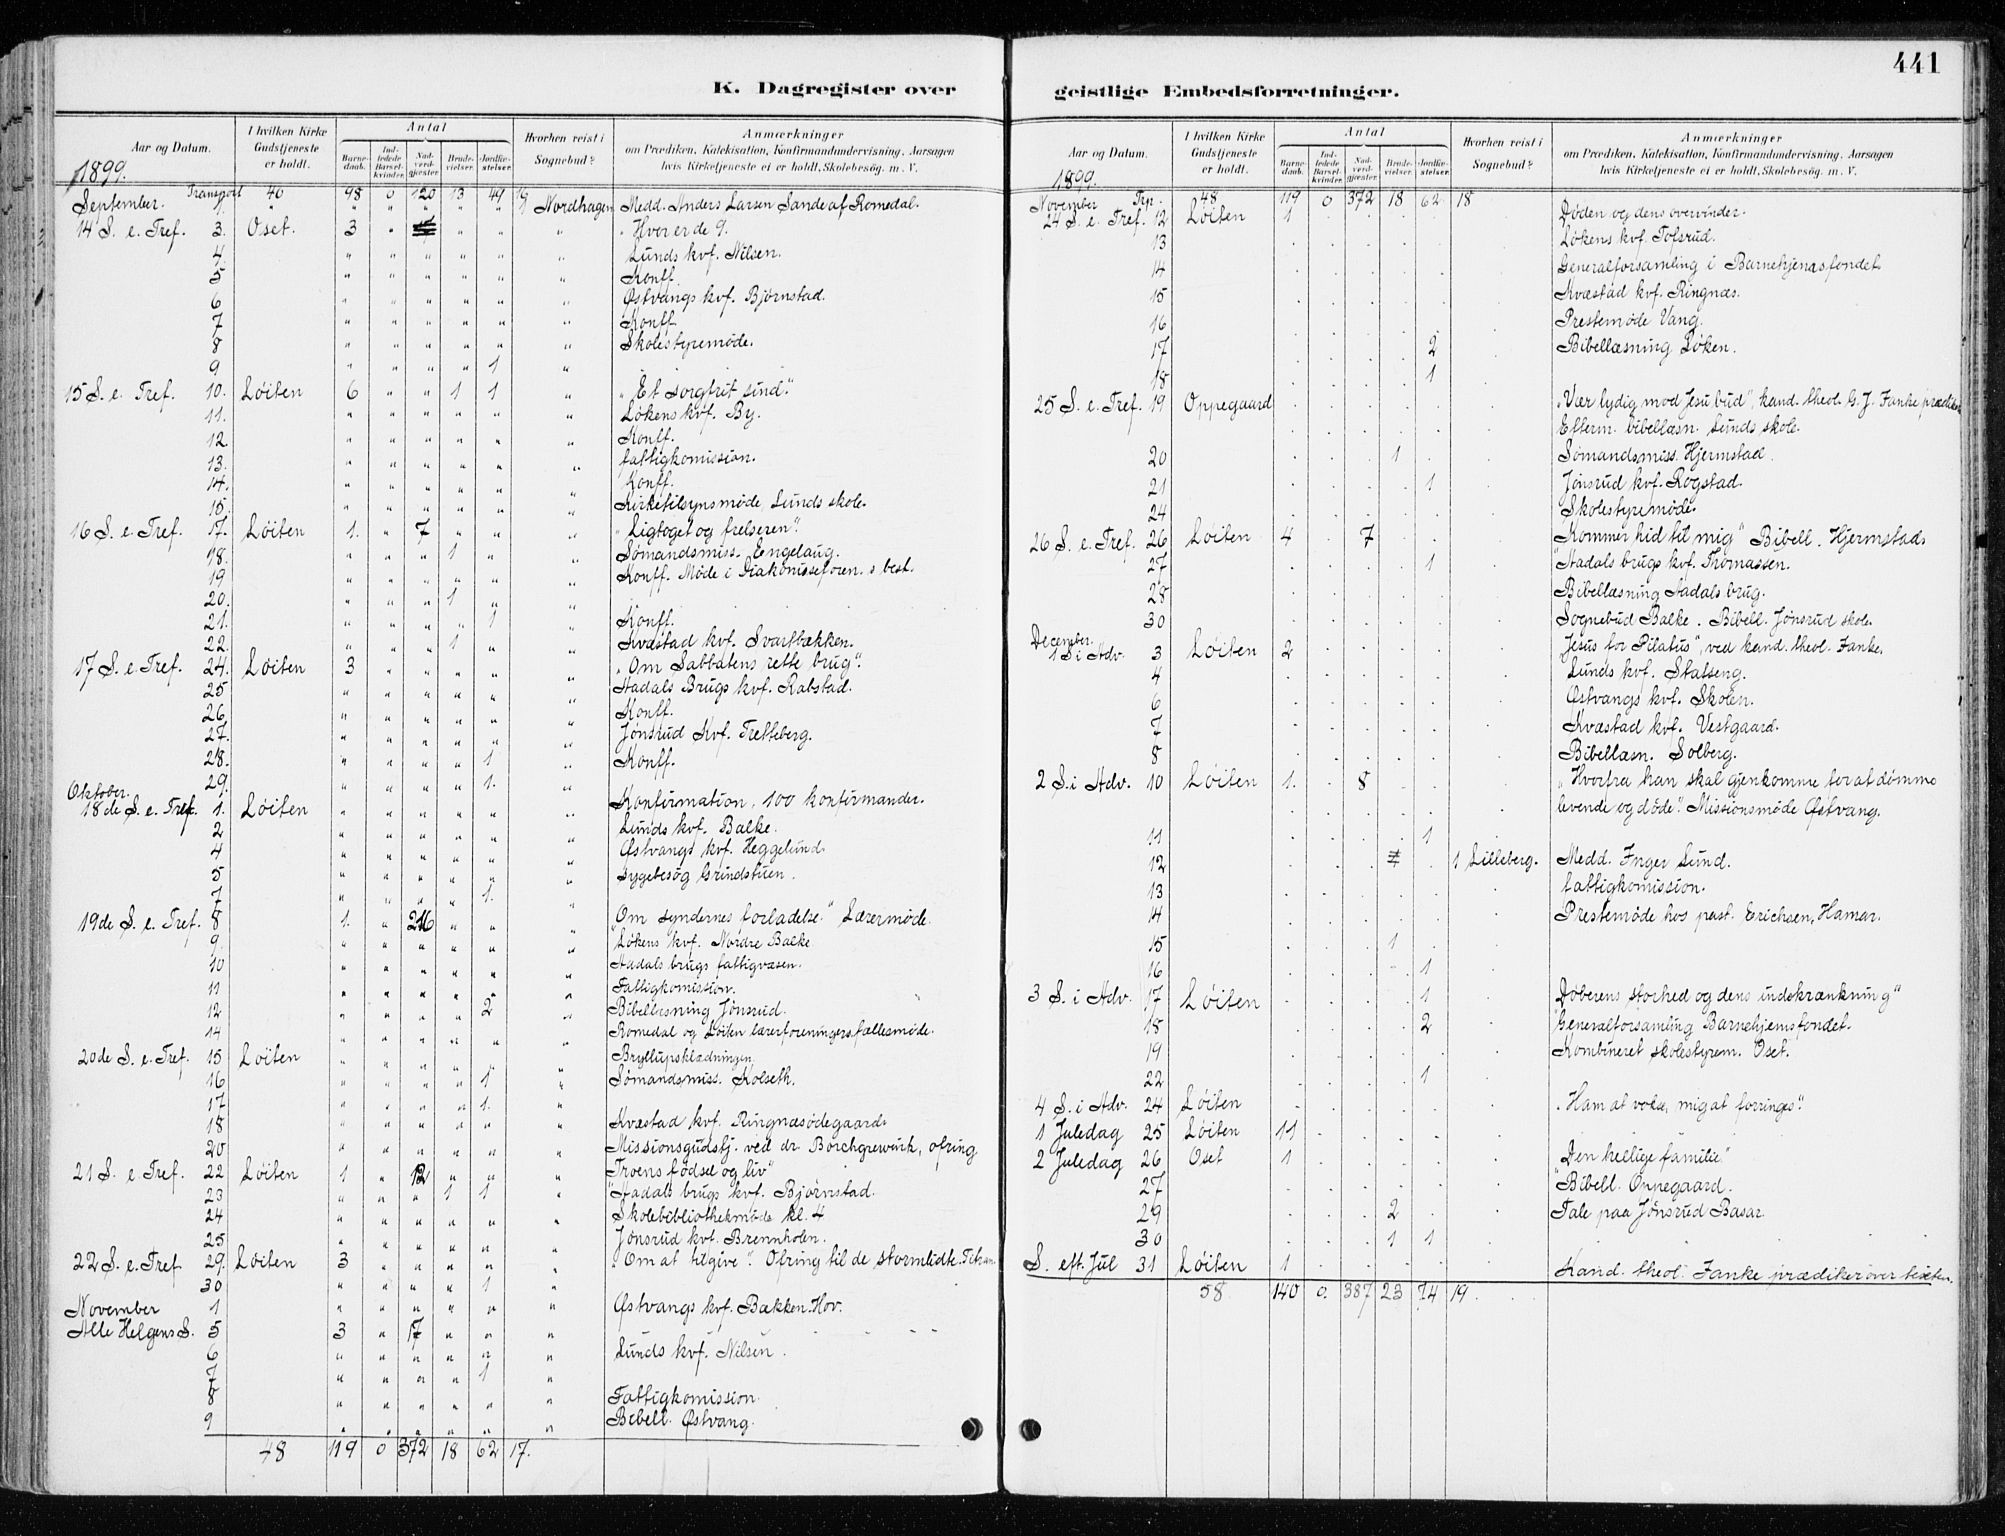 441
K. Dagregister over
Aar og Datum.
I hvilken Kirke Gudstjeneste er holdt.
Antal
Barnedaab.
Indledede Barselkvinder.
Nadverdgjester.
Brudevielser.
Jordfæstelser.
Hvorhen reist i Sognebud?
Anmærkninger
om Prædiken, Katekisation, Konfirmandundervisning, Aarsagen
hvis Kirketjeneste ei er holdt, Skolebesög. m. V.
1899.
September. Transport 40 98 0 120 13 49
1 Nordhagen Medd. Anders Larsen Sande af Romedal.
14 S. e. Tref. 3. Oset. 3 " Hver er de 9.
4. Lunds kvf. Nilsen.
5 Konff.
6 Østvangs kvf. Bjørnstad.
7 Konff.
8 Skolestyremøde.
9 1
15 S. e. Tref. 10. Løiten 6 " " 1 1 " „Et sorgfrit sind."
11. Løkens kvf. By.
12. Konff.
13. fattigkomission.
14. Konff.
15. Kirketilsynsmøde Lunds skole.
16 S. e. Tref. 17. Løiten 1. " 7 " " " „Ligtoget og frelseren".
18. 1 Sømandsmiss. Engelaug.
19 Konff. Møde i Diakonisseforen.s best.
20. 1
21. 1 Konff.
22. 1 Kvæstad kvf. Svartbækken.
17 S. e. Tref. 24. Løiten 3 „Om Sabbatens rette brug".
25 Aadals Brugs kvf. Rabstad.
26. Konff.
27. Jønsrud Kvf. Tretteberg.
28. 1 Konff.
29. 1.
Oktober.
18de S. e. Tref. 1. Løiten Konfirmation, 100 konfirmander.
2 Lunds kvf. Balke.
4 Østvangs kvf. Heggelund.
5 Sygebesøg Grindstuen.
7 1.
19de S. e. Tref. 8 1. „Om syndernes forladelse." Lærermøde.
9. Løkens kvf. Nordre Balke
10 Aadals brugs fattigvæsen.
11 Fattigkomission.
12 2 Bibellæsning Jønsrud.
14 Romedal og Løiten lærerforeningers fællesmøde.
20de S. e. Tref. 15 Løiten Bryllupsklædningen.
16 1 Sømandsmiss. Kolseth.
17 1.
18 Kvæstad kvf. Ringnæsødegaard.
20 Missionsgudstj. ved dr. Borchgrevink, ofring
21 S. e. Tref. 22 Løiten 1 " 12 Troens fødsel og liv"
23 1 1 Aadals brugs kvf. Bjørnstad.
24 Skolebibliothekmøde kl. 4
25 Jønsrud kvf. Brennholen.
22 S. e. Tref 29. Løiten 3 „Om at tilgive". Ofring til de stormlidte
30 1
November 1 Østvangs kvf. Bakken. Hov.
Alle Helgens S. 5 3 " 17
6 Lunds kvf. Nilsen.
7 1
8 Fattigkomission.
9 Bibell. Østvang.
48 119 0 372 18 62 17.
geistlige Embedsforretninger.
Aar og Datum.
I hvilken Kirke Gudstjeneste er holdt.
Antal
Barnedaab.
Indledede Barselkvinder.
Nadverdgjester.
Brudevielser.
Jordfæstelser.
Hvorhen reist i Sognebud?
Anmærkninger
om Prædiken, Katekisation, Konfirmandundervisning, Aarsagen
hvis Kirketjeneste ei er holdt, Skolebesög. m. V.
1899.
November Trp. 48 119 0 372 18 62 18
24 S. e. Tref. 12 Løiten 1 Døden og dens overvinder.
13 Løkens kvf. Tofsrud.
14 Generalforsamling i Barnehjemsfondet.
15 Kvæstad kvf. Ringnæs.
16 Prestemøde Vang.
17 2 Bibellæsning Løken.
18 1
25 S. e. Tref. 19 Oppegaard „Vær lydig mod Jesu bud", kand. theol. G. J. Fanke prædiker
Efterm. bibellæsn. Lunds skole.
20 1 Sømandsmiss. Hjermstad.
21 1 Jønsrud kvf. Rogstad.
24 Skolestyremøde.
26 S. e. Tref. 26 Løiten 4 7 „Kommer hid til mig" Bibell. Hjermstad.
27 1 Aadals brugs kvf. Thomassen.
28 Bibellæsning Aadals brug.
30 Sognebud Balke. Bibell. Jønsrud skole.
December.
1 S i Adv. 3 Løiten 2 Jesus for Pilatus", ved kand. theol. Fanke.
4 Lunds kvf. Statseng.
6 Østvangs kvf. Skolen.
7 Kvæstad kvf. Vestgaard.
8 Bibellæsn. Solberg.
2 S. i Adv. 10 Løiten 1. 8 „Hvorfra han skal gjenkomme for at dømme
levende og døde". Missionsmøde Østvang.
11 1
12 1 Lilleberg. Medd. Inger Lund.
13 fattigkomission.
14 Prestemøde hos past. Erichsen, Hamar.
15 1
16 1
3 S. i Adv. 17 Løiten 1 Døberens storhed og dens indskrænkning"
18 2 Generalforsamling Barnehjemsfondet.
19 Kombineret skolestyrem. Oset.
22 1
4 S. i Adv. 24 Løiten „Ham at vokse, mig at forringes".
1 Juledag 25 Løiten 11
2 Juledag 26 Oset 1 „Den hellige familie"
27 Bibell. Oppegaard.
29 2 Tale paa Jønsrud Basar.
30 1 1
S. eft. Jul 31 Løiten 1 Kand. theol. Fanke prædiker over texten.
58 140 0. 387 23 74 19